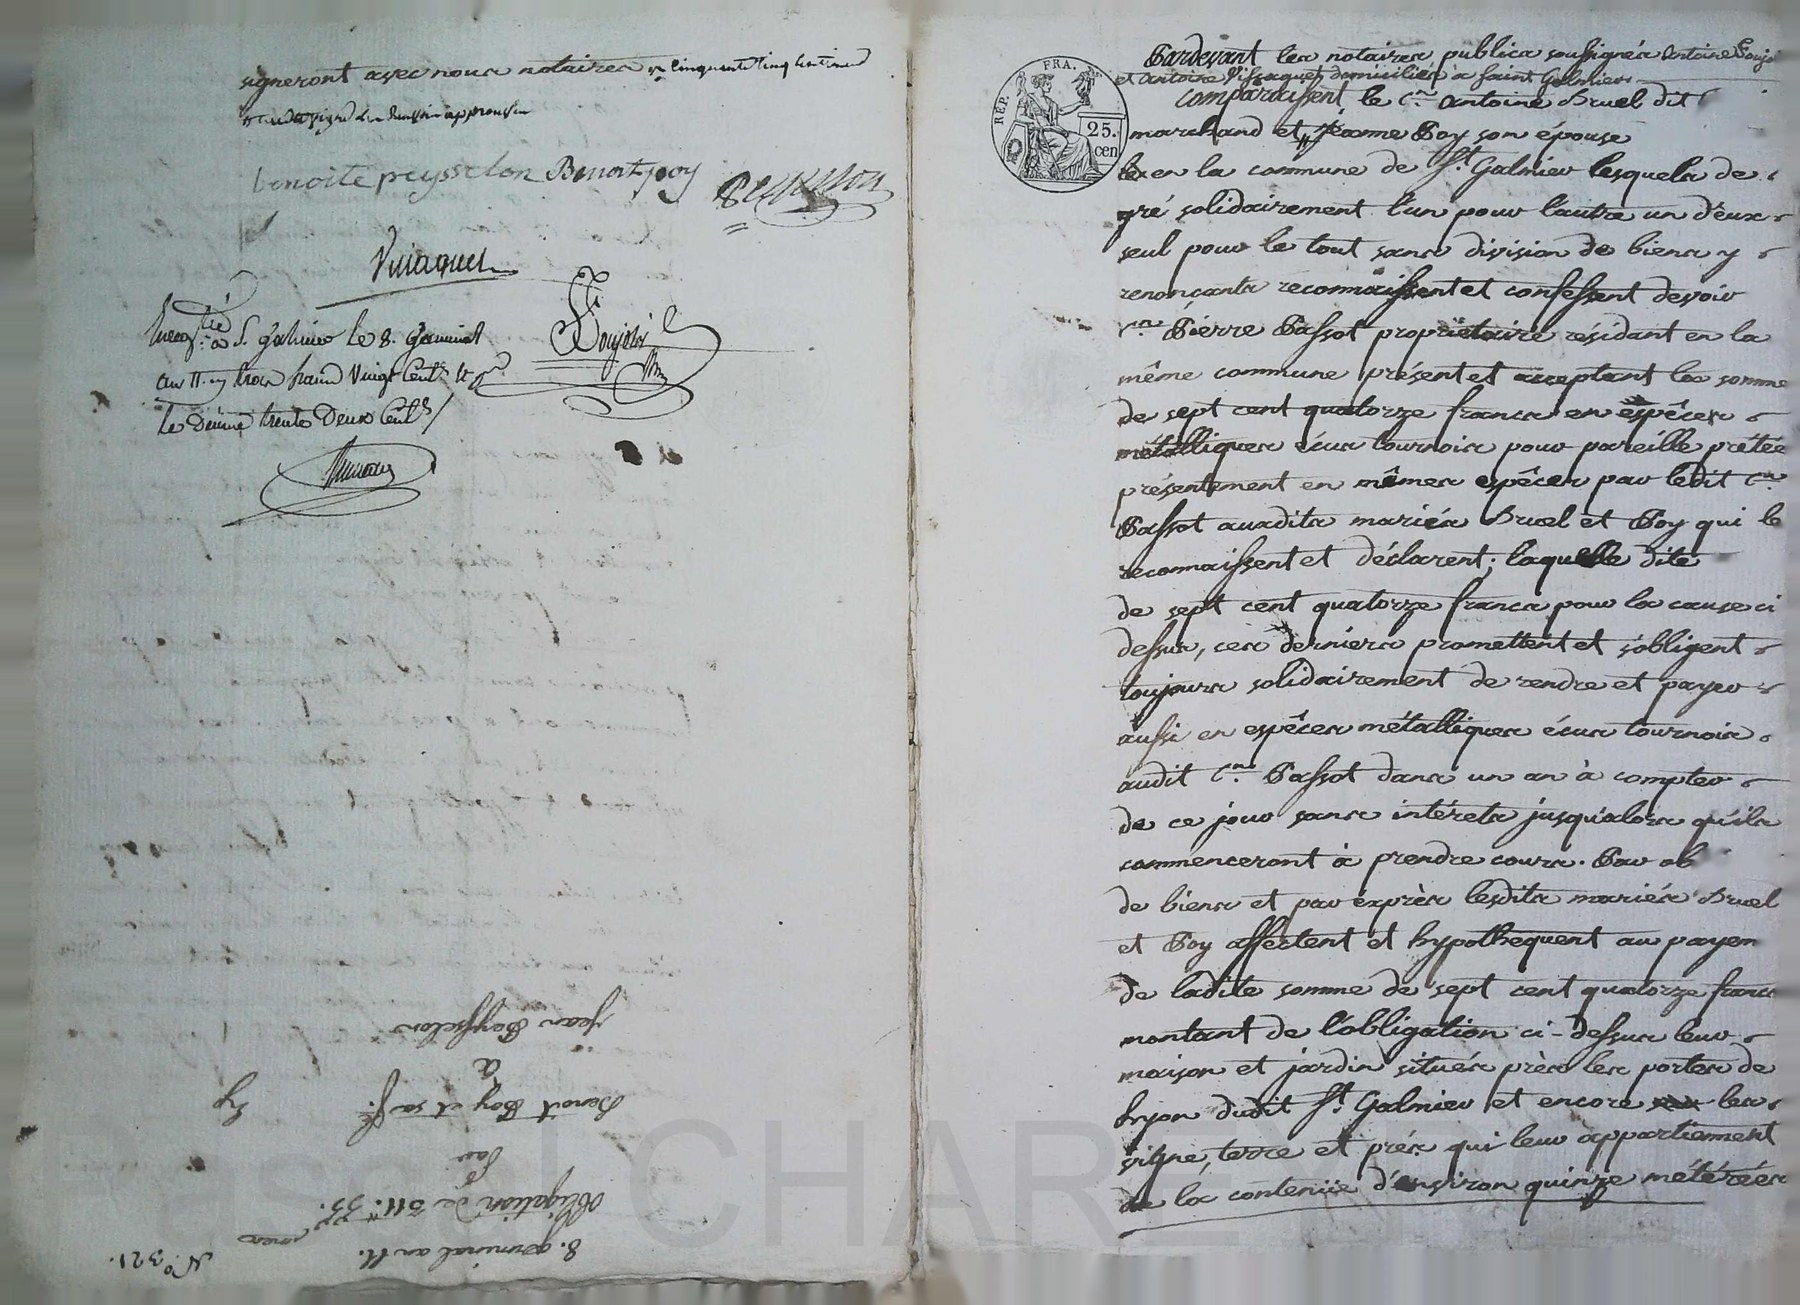 signeront avec nous notaires cinquante cinq centimes
Benoite peysselon Benoit poy
Vissaguet
Enreg.tré à S. Galmier le 8. Germinal
an 11. trois francs Vingt Cent.s
le Decime trente Deux Cent.s
jean Peysselon
a
Benoit Poy et sa f.e
par
obligation de 311.tt 55.
8. germinal an 11.
N.o 321.
REP. FRA.
25.
cen
Pardevant les notaires publics soussignés Antoine
et Antoine Vissaguet domiciliés a Saint Galmier
comparaissent le C.en Antoine Bruel dit
marchand et Jeanne Poy son épouse
en la commune de S.t Galmier lesquels de
gré solidairement l'un pour l'autre un d'eux
seul pour le tout sans division de biens y
renonçants reconnaissent et confessent devoir
C.en Pierre Passot propriétaire résidant en la
même commune présent et acceptant la somme
de sept cent quatorze francs en espêces
métalliques écus tournois pour pareille prétée
présentement en mêmes espêces par ledit C.en
Passot auxdits mariés Bruel et Poy qui le
reconnaissent et déclarent; laquelle dite
de sept cent quatorze francs pour la cause ci
dessus, ces derniers promettent et s'obligent
toujours solidairement de rendre et payer
aussi en espêces métalliques écus tournois
audit C.en Passot dans un an à compter
de ce jour sans intérets jusqu'alors qu'ils
commenceront à prendre cours. Par ob
de biens et par éxprès lesdits mariés Bruel
et Poy affectent et hypothequent au payem
de ladite somme de sept cent quatorze francs
montant de l'obligation ci-dessus leur
maison et jardin situés près les portes de
Lyon dudit S.t Galmier et encore les
vigne, terre et prés qui leur appartiennent
de la contenüe d'environ quinze métérées